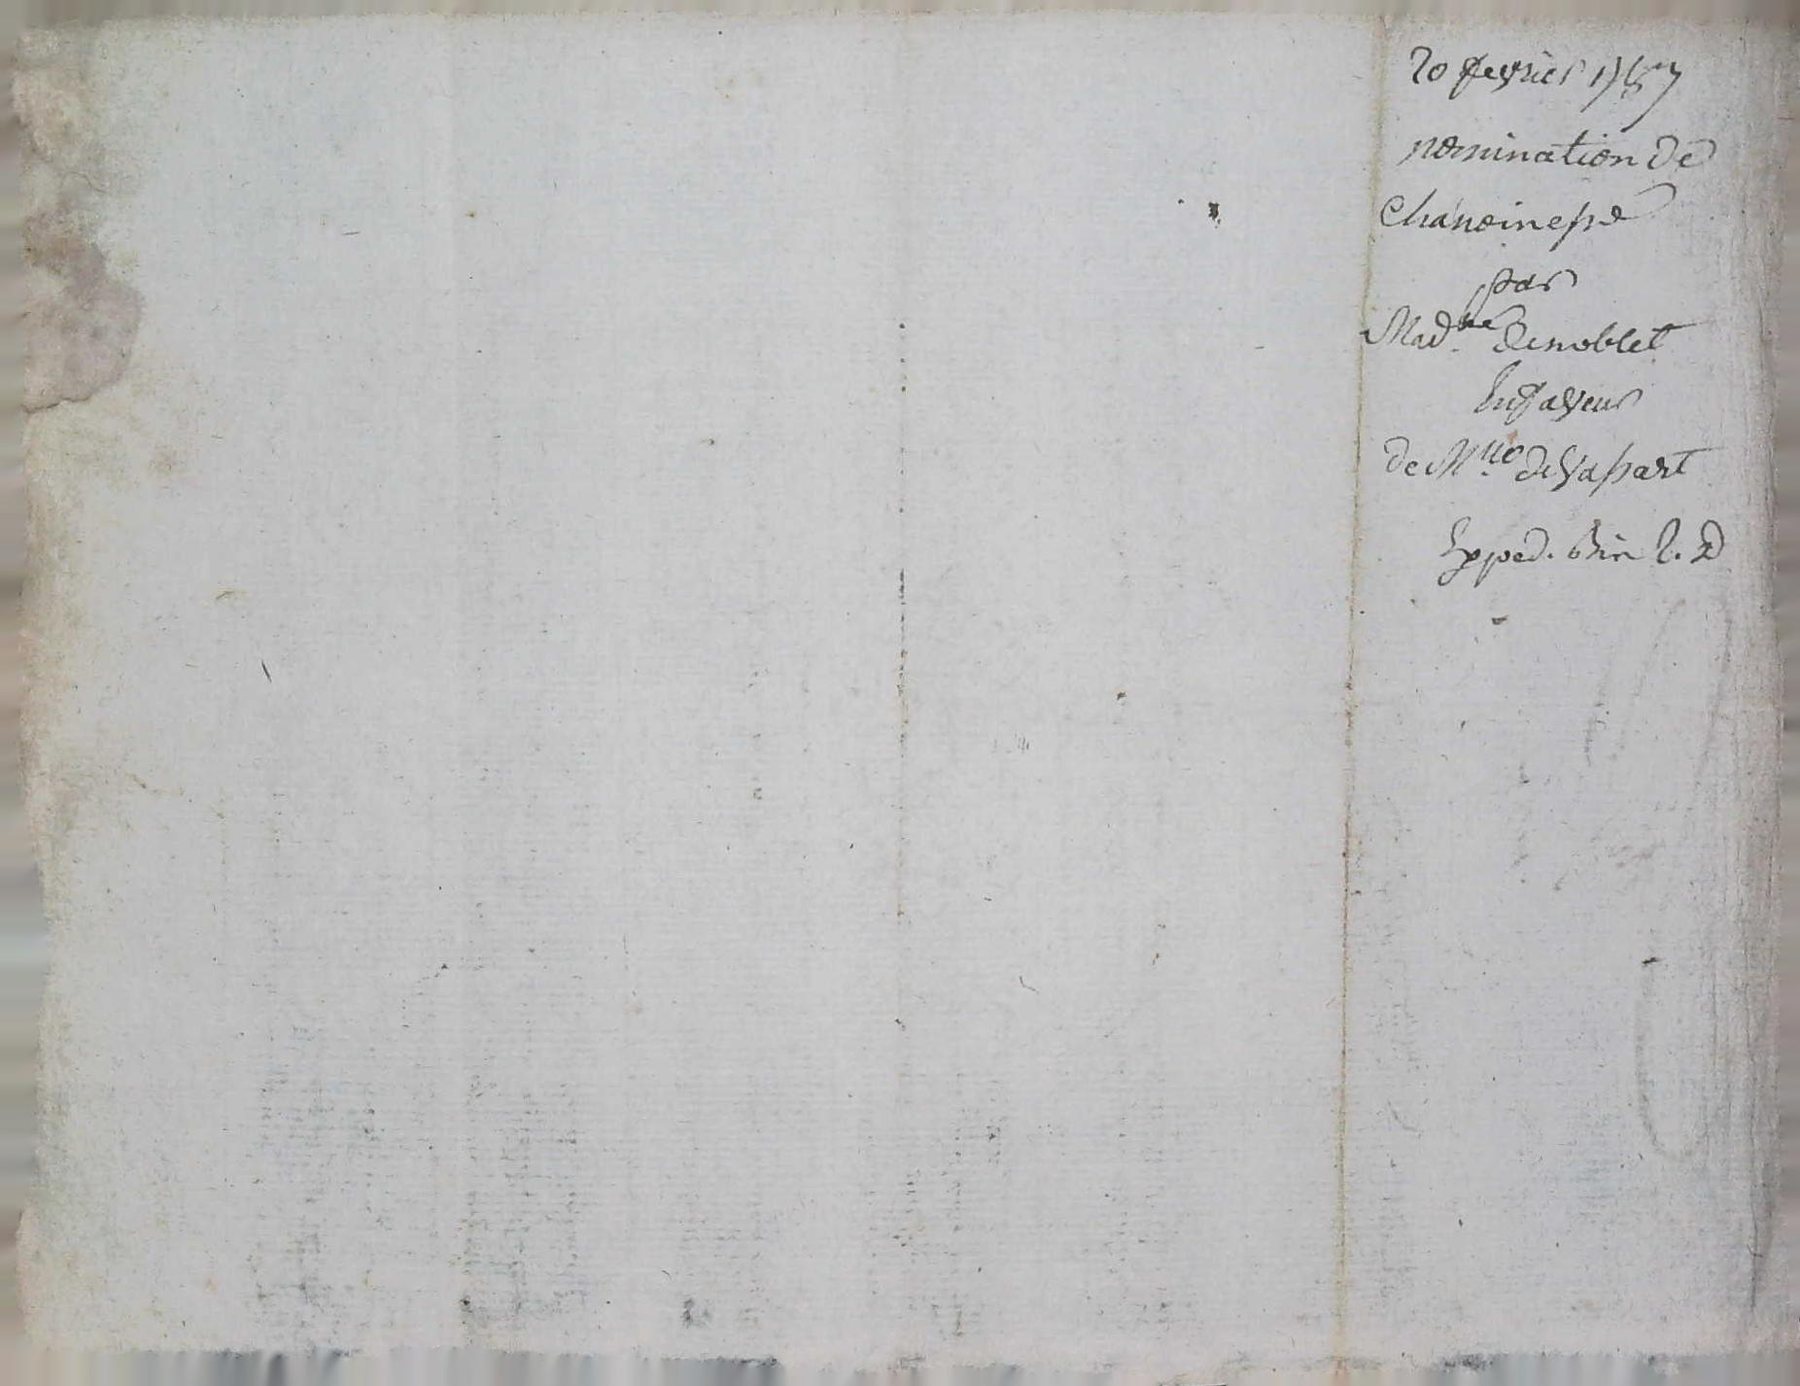 20 fevrier 1787
nomination de
Chanoinesse
par
Mad.me Denoblet
Enfaveur
de M.lle deVassart
Exped.